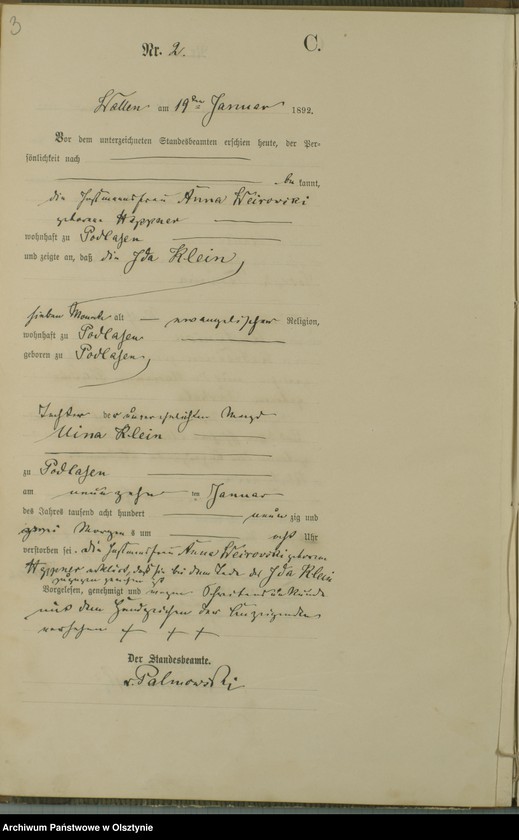 3
Nr. 2.
C.
Wallen am 19ten Januar 1892.
Vor dem unterzeichneten Standesbeamten erschien heute, der Per-
sönlichkeit nach
be kannt,
die Instmannsfrau Anna Weirowski
geborene Höppner
wohnhaft zu Podlasen
und zeigte an, daß die Ida Klein,
sieben Monate alt — ewangelischer Religion,
wohnhaft zu Podlasen
geboren zu Podlasen,
Tochter der unverehelichten Magd
Mina Klein
zu Podlasen
am neunzehn ten Januar
des Jahres tausend acht hundert neun zig und
zwei Morgen s um acht Uhr
verstorben sei. Die Instmannsfrau Anna Weirowski geborene
Höppner erklärt, daß sie bei dem Tode der Ida Klein
zugegen gewesen ist
Vorgelesen, genehmigt und wegen Schreibens Unkunde
mit dem Handzeichen der Anzeigenden
versehen + + +
Der Standesbeamte.
v. Palmowski
Archiwum Państwowe w Olsztynie